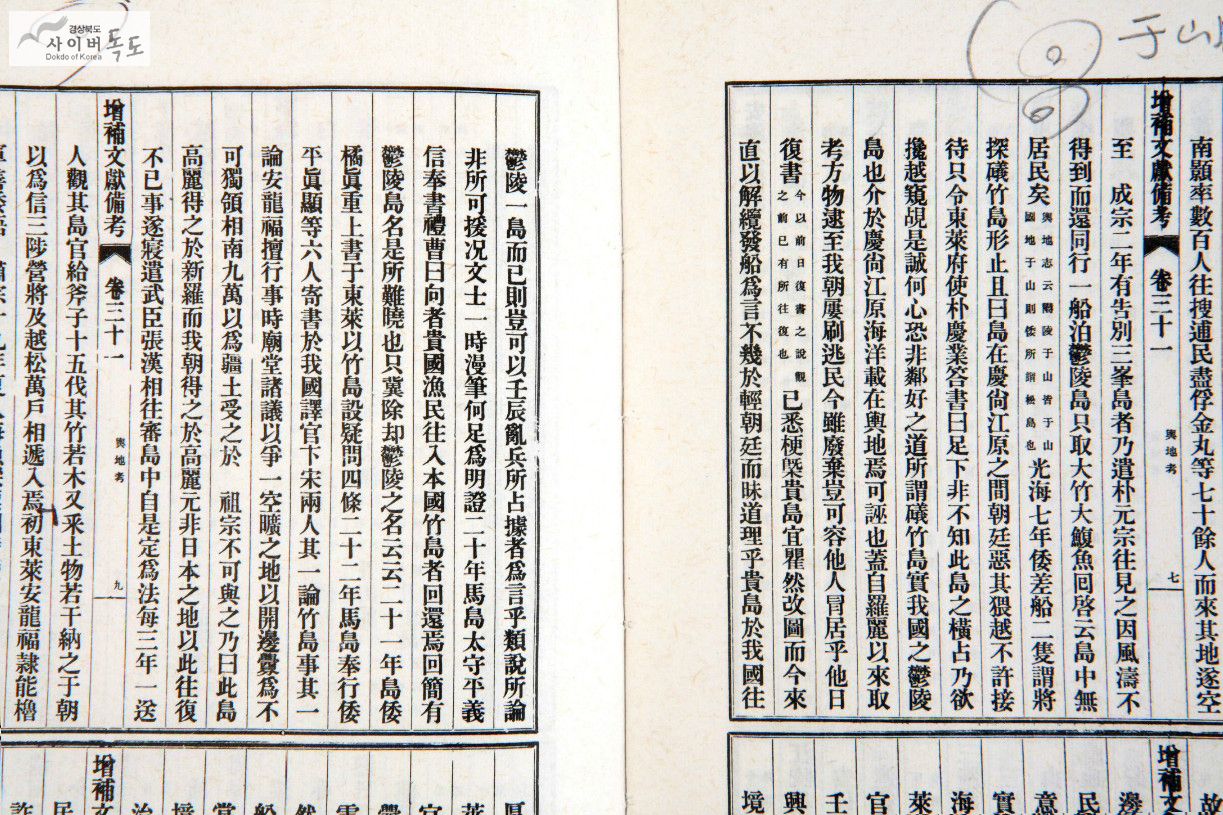 경상북도
사이버독도
Dokdo of Korea
于山
南顥率數百人往搜逋民盡俘金丸等七十餘人而來其地遂空
增補文獻備考 卷三十一 輿地考 七
至 成宗二年有告別三峯島者乃遣朴元宗往見之因風濤不
得到而還同行一船泊鬱陵島只取大竹大鰒魚回啓云島中無
居民矣 輿地志云鬱陵于山皆于山國地于山則倭所謂松島也 光海七年倭差船二隻謂將
探礒竹島形止且曰島在慶尙江原之間朝廷惡其猥越不許接
待只令東萊府使朴慶業答書曰足下非不知此島之橫占乃欲
攙越窺覘是誠何心恐非鄰好之道所謂礒竹島實我國之鬱陵
島也介於慶尙江原海洋載在輿地焉可誣也蓋自羅麗以來取
考方物逮至我朝屢刷逃民今雖廢棄豈可容他人冒居乎他日
復書 今以前日復書之說觀之前已有所往復也 已悉梗槩貴島宜瞿然改圖而今來
直以解纜發船爲言不幾於輕朝廷而昧道理乎貴島於我國往
鬱陵一島而已則豈可以壬辰亂兵所占據者爲言乎類說所論
非所可援况文士一時漫筆何足爲明證二十年馬島太守平義
信奉書禮曹曰向者貴國漁民往入本國竹島者回還焉回簡有
鬱陵島名是所難曉也只冀除却鬱陵之名云云二十一年島倭
橘眞重上書于東萊以竹島設疑問四條二十二年馬島奉行倭
平眞顯等六人寄書於我國譯官下宋兩人其一論竹島事其一
論安龍福擅行事時廟堂諸議以爭一空曠之地以開邊釁爲不
可獨領相南九萬以爲疆土受之於 祖宗不可與之乃曰此島
高麗得之於新羅而我朝得之於高麗元非日本之地以此往復
不已事遂寢遣武臣張漢相往審島中自是定爲法每三年一送
增補文獻備考 卷三十一 輿地考 九
人觀其島官給斧子十五伐其竹若木又釆土物若干納之于朝
以爲信三陟營將及越松萬戶相遞入焉初東萊安龍福隷能櫓
增補文
邊
民
意
實
海
萊
官
壬
興
境
增補文